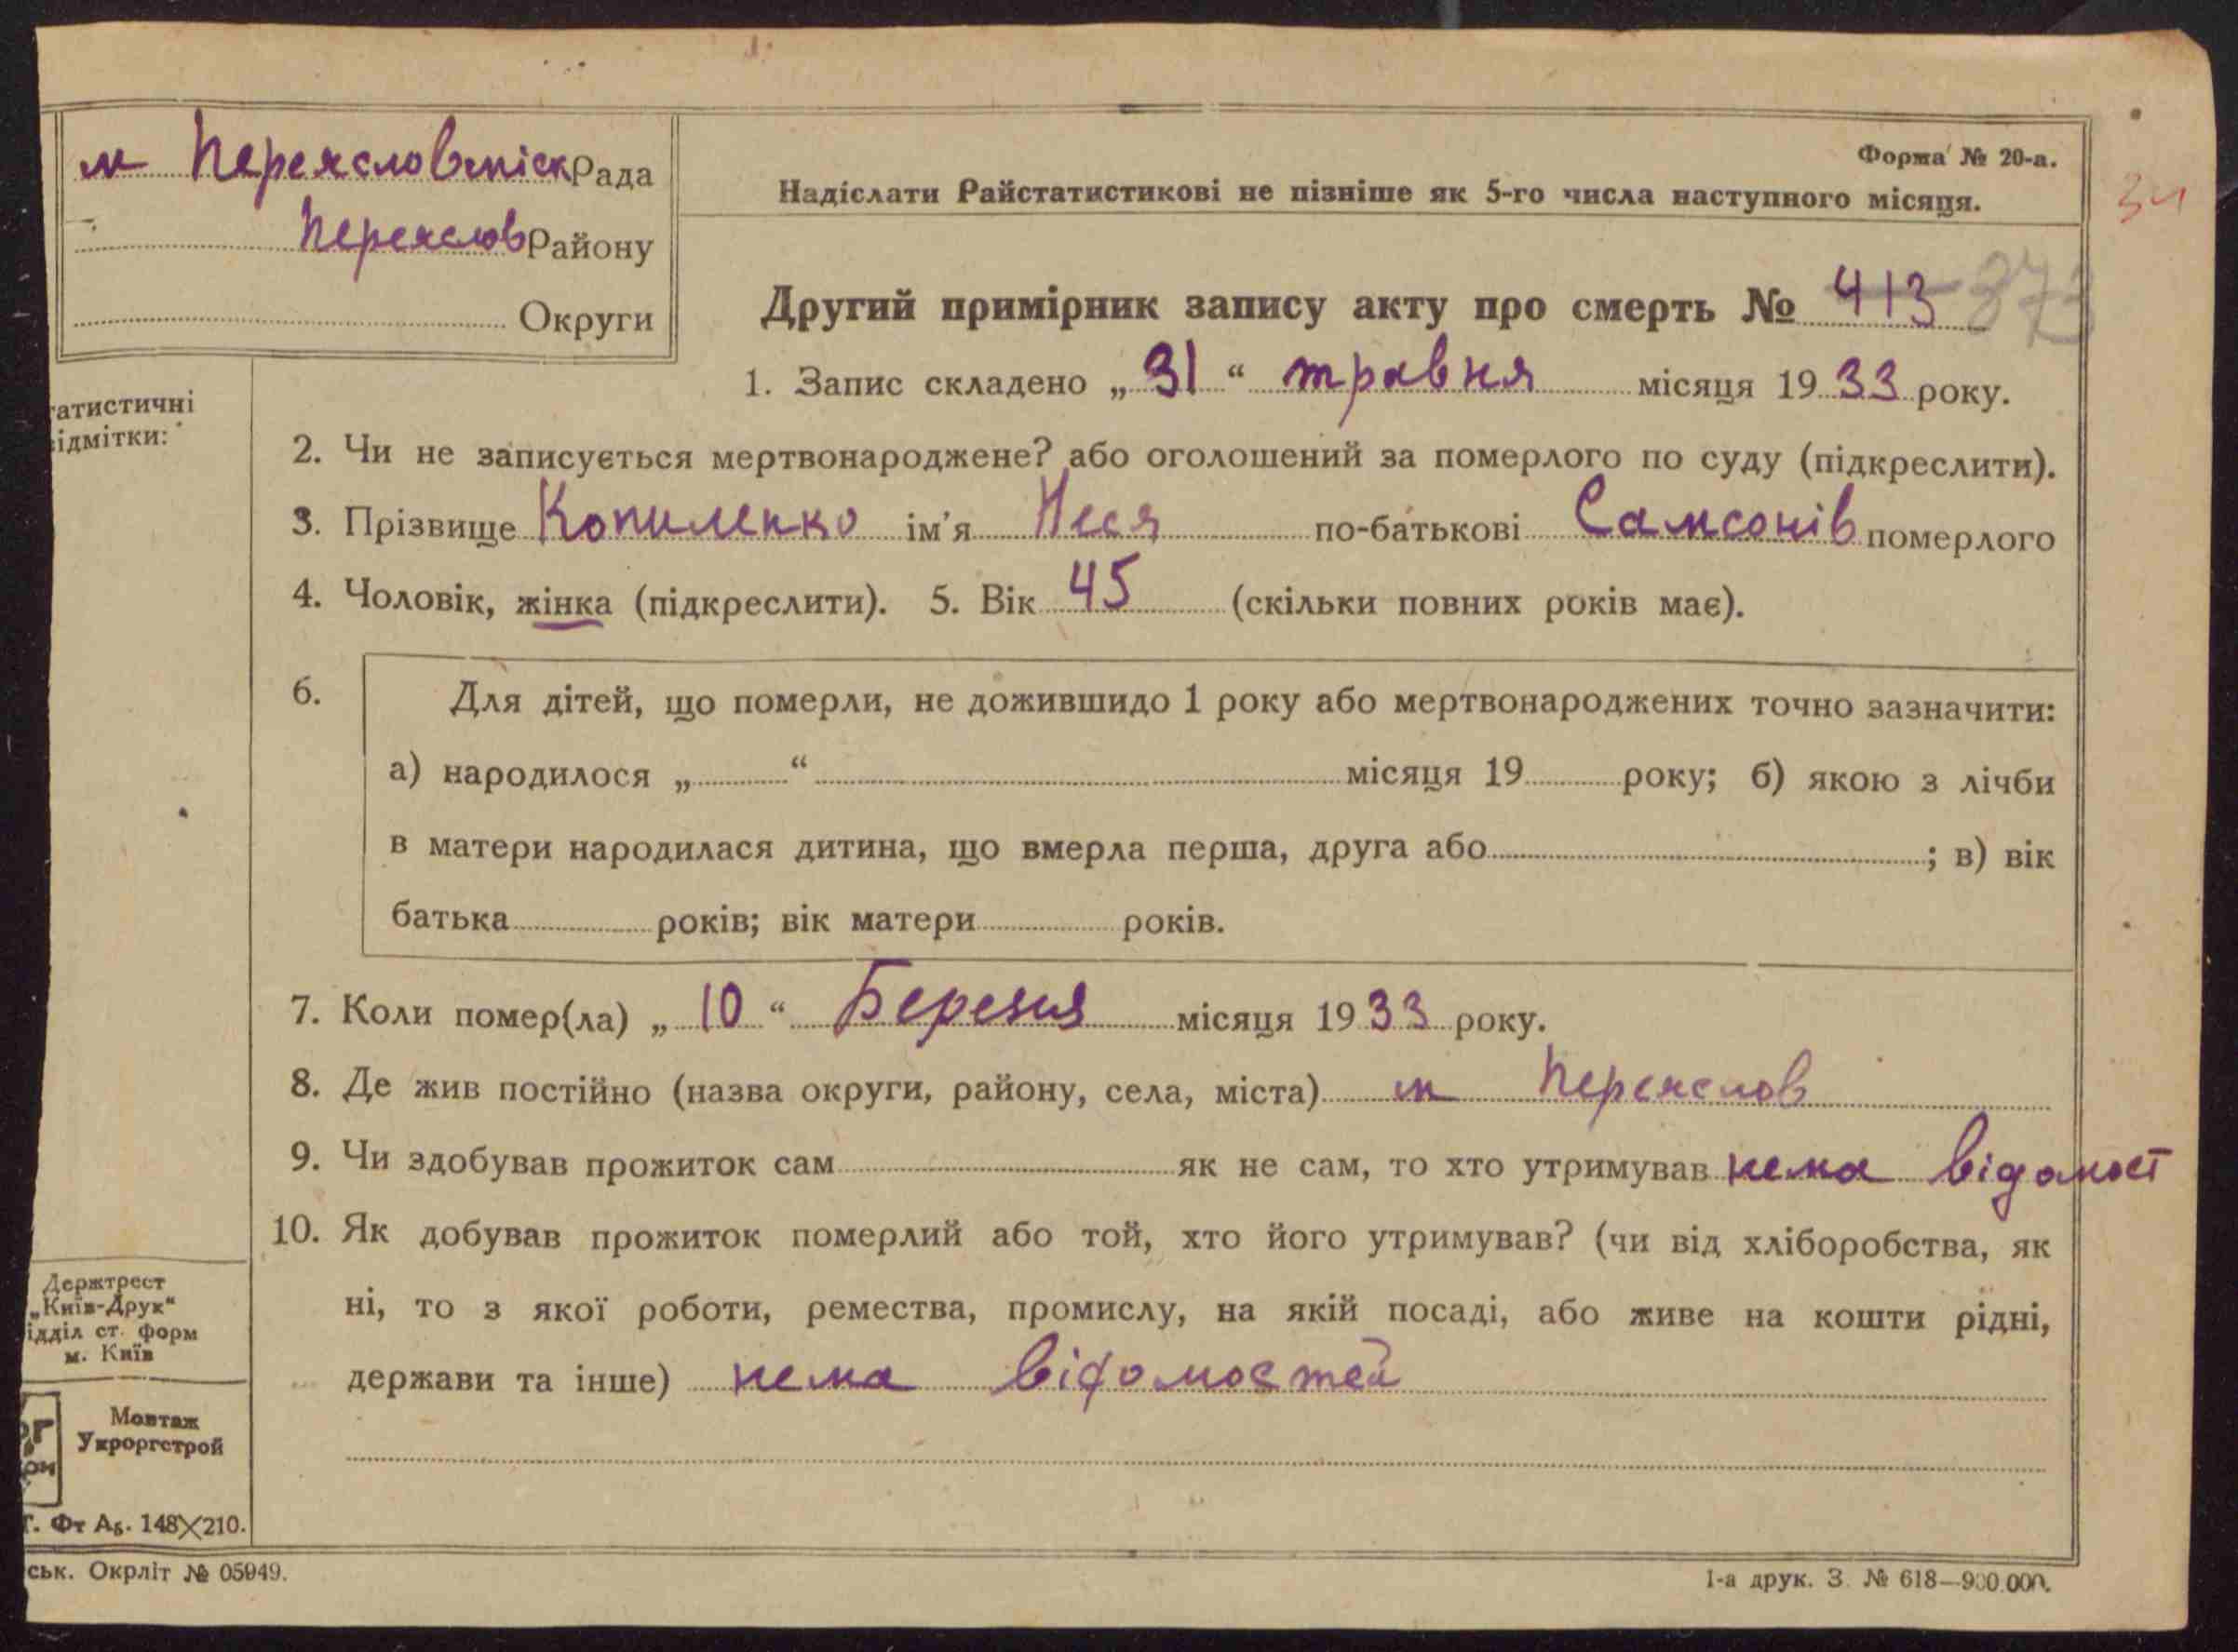 м Переясловміск Рада
Переяслов Району
Округи
Форма № 20-а.
Надіслати Райстатистикові не пізніше як 5-го числа наступного місяця.
31
Другий примірник запису акту про смерть № 413 373
1. Запис складено „31“ травня місяця 1933 року.
татистичні
відмітки:
2. Чи не записується мертвонароджене? або оголошений за померлого по суду (підкреслити).
3. Прізвище Копиленко ім'я Неся по-батькові Самсонів померлого
4. Чоловік, жінка (підкреслити). 5. Вік 45 (скільки повних років має).
6. Для дітей, що померли, не дожившидо 1 року або мертвонароджених точно зазначити:
а) народилося „ “ місяця 19 року; б) якою з лічби
в матери народилася дитина, що вмерла перша, друга або ; в) вік
батька років; вік матери років.
7. Коли помер(ла) „10“ Березня місяця 1933 року.
8. Де жив постійно (назва округи, району, села, міста) м Переяслов
9. Чи здобував прожиток сам як не сам, то хто утримував нема відомост
10. Як добував прожиток померлий або той, хто його утримував? (чи від хліборобства, як
ні, то з якої роботи, ремества, промислу, на якій посаді, або живе на кошти рідні,
держави та інше) нема відомостей
Держтрест
„Київ-Друк“
ідділ ст. форм
м. Київ
Монтаж
Укроргстрой
Т. Фт А5. 148×210.
ськ. Окрліт № 05949.
1-а друк. З. № 618—900.000.